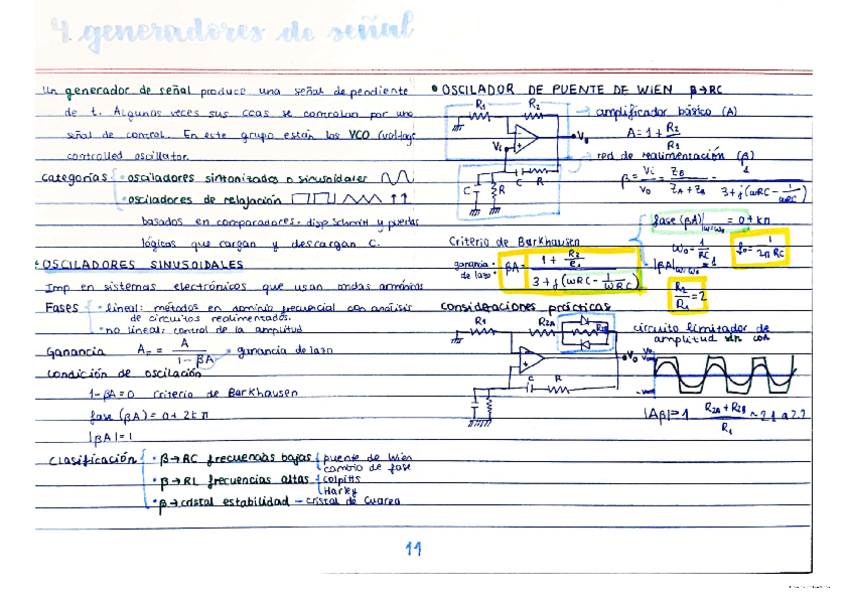 4. generadores de señal
Un generador de señal produce una señal dependiente
de t. Algunas veces sus ccas se controlan por una
señal de control. En este grupo están los VCO (voltage
controlled oscillator.
categorías · osciladores sintonizados o sinusoidales
· osciladores de relajación
basados en comparadores, disp Schmitt y puertas
lógicas que cargan y descargan C.
· OSCILADORES SINUSOIDALES
Imp en sistemas electrónicos que usan ondas armónicas
Fases · lineal: métodos en dominio frecuencial con análisis
de circuitos realimentados.
· no lineal: control de la amplitud
Ganancia A_F = A / (1 - βA) ganancia de lazo
condición de oscilación
1-βA=0 criterio de Barkhausen
fase (βA) = 0 + 2kπ
|βA|=1
Clasificación · β→RC frecuencias bajas puente de Wien
cambio de fase
· β→RL frecuencias altas colpitts
Harley
· β→cristal estabilidad – cristal de cuarzo
• OSCILADOR DE PUENTE DE WIEN β→RC
R1 R2 amplificador básico (A)
Vi V0 A = 1 + R2/R1
red de realimentación (β)
C R C R β = Vi/V0 = ZB/(ZA+ZB) = 1/(3+j(ωRC - 1/ωRC))
fase (βA)|ω=ω0 = 0+kπ
Criterio de Barkhausen ω0 = 1/RC f0 = 1/2πRC
ganancia de lazo βA = (1 + R2/R1)/(3+j(ωRC - 1/ωRC)) |βA|ω=ω0 = 1
R2/R1 = 2
consideraciones prácticas
R1 R2A R2B circuito limitador de
amplitud sin con
V0
C R
|Aβ|=1 (R2A + R2B)/R1 ~ 2.1 a 2.2
11